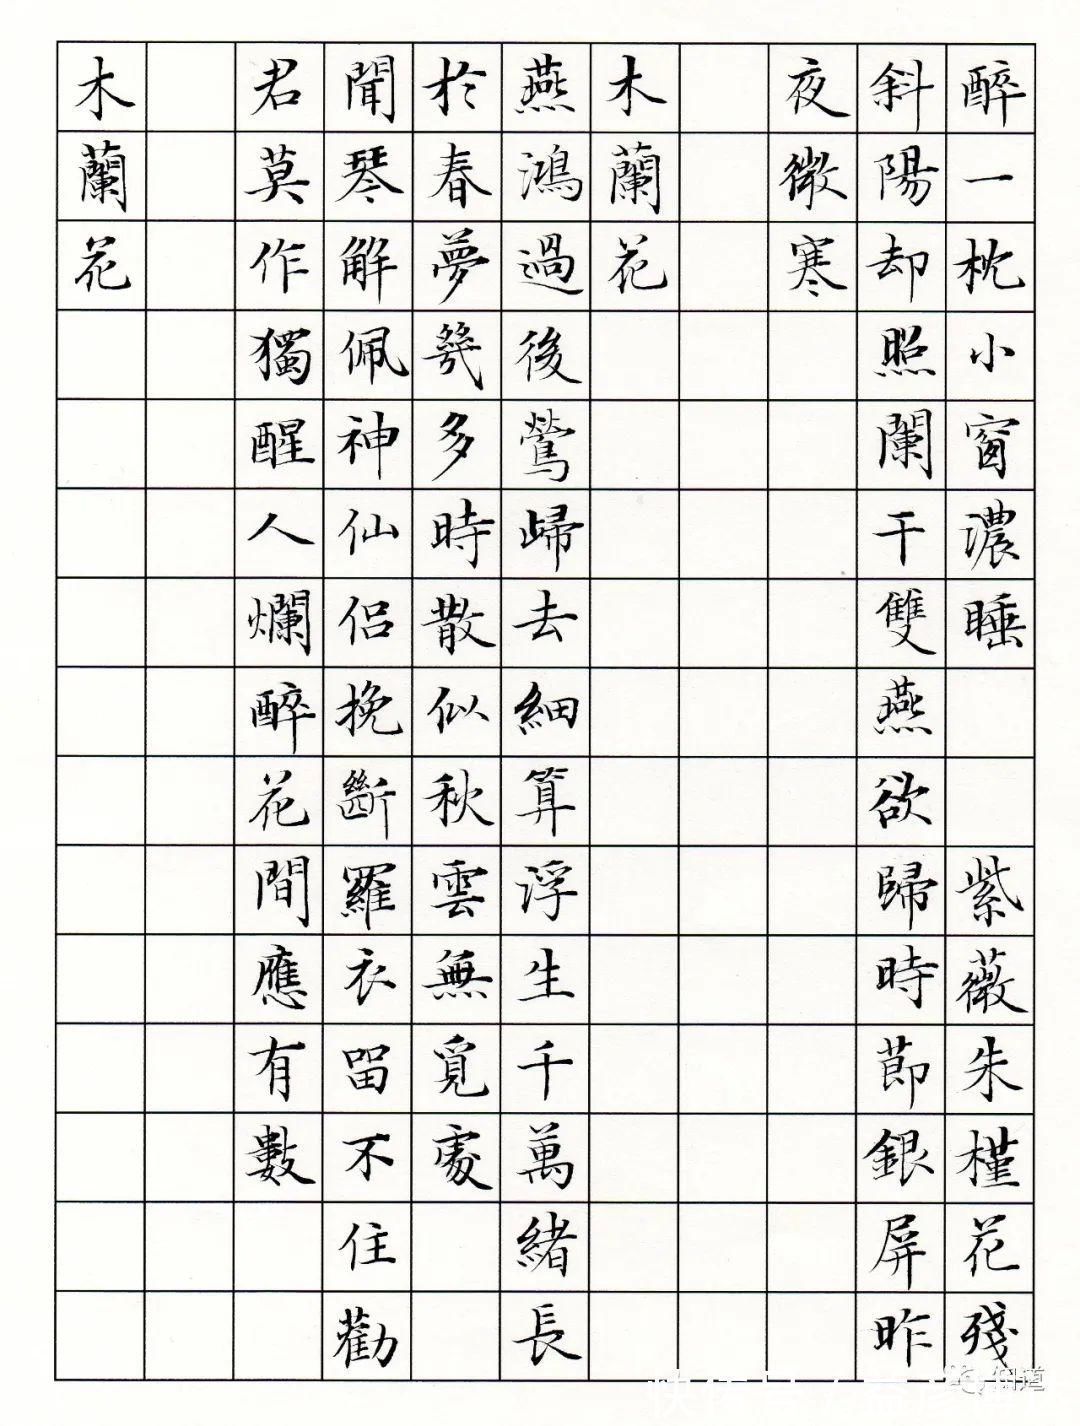 醉一枕小窗濃睡　紫薇朱槿花殘
斜陽却照闌干雙燕欲歸時節銀屏昨
夜微寒
木蘭花
燕鴻過後鶯歸去細算浮生千萬緒長
於春夢幾多時散似秋雲無覓處
聞琴解佩神仙侶挽斷羅衣留不住勸
君莫作獨醒人爛醉花間應有數
木蘭花